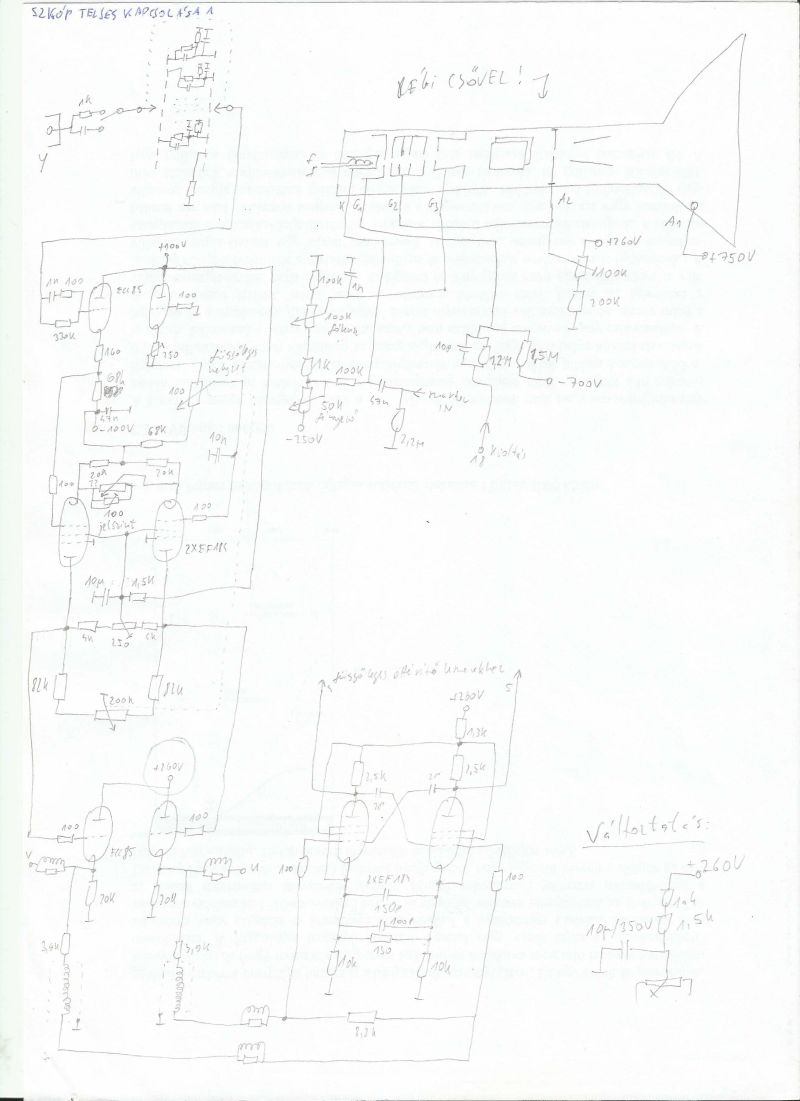 SZKÓP TELJES KAPCSOLÁSA 1
RÉGI CSŐVEL!
1k
Y
f
f
K G1 G2 G3 A2
A1
+260V
+750V
100k
200k
+100V
1n 100
ECC85
100
330k
160
250
68k
47n
-100V
függőleges
helyzet
100
68k
10n
100k
1n
100k
fókusz
1k
100k
47n
50k
fényerő
-250V
2,2M
IN
10p
1,2M
1,5M
-700V
kioltás
20k
20k
100
100
jelszint
100
2XEF184
10µ
1,5k
4k
250
4k
82k
82k
200k
+260V
100
ECC85
100
V
U
20k
20k
3,9k
3,9k
függőleges eltérítő lemezekhez
S
+260V
1,3k
1,5k
1,5k
100
2XEF184
100
150p
100p
150
10k
10k
2,2k
Változtatás:
+260V
1ok
1,5k
10µ/350V